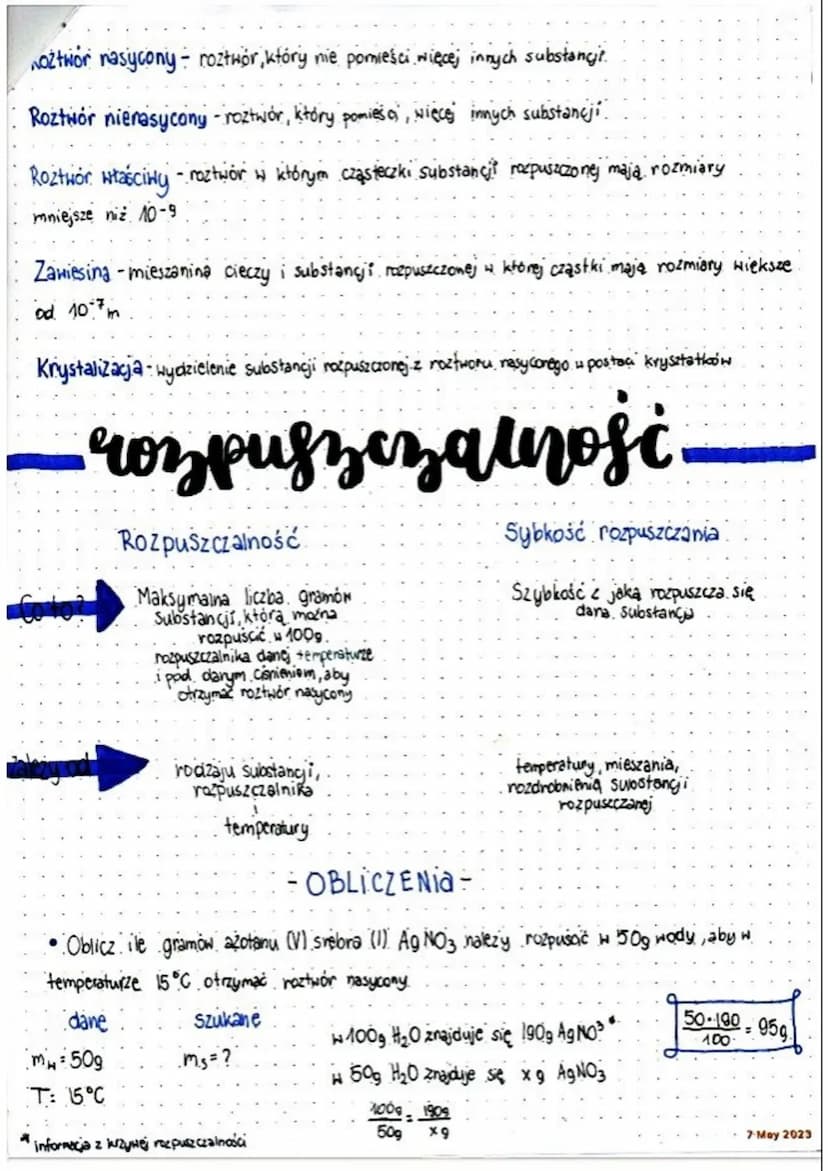 Roztwór nasycony - roztwór, który nie pomieści więcej innych substancji.
Roztwór nienasycony - roztwór, który pomieści, więcej innych substancji.
Roztwór właściwy - roztwór w którym cząsteczki substancji rozpuszczonej mają rozmiary
mniejsze niż 10⁻⁹
Zawiesina - mieszanina cieczy i substancji rozpuszczonej w której cząstki mają rozmiary większe
od 10⁻⁷m
Krystalizacja - wydzielenie substancji rozpuszczonej z roztworu nasyconego w postaci kryształków
rozpuszczalność
Rozpuszczalność Sybkość rozpuszczania
Co to?
Maksymalna liczba gramów
substancji, którą można
rozpuścić w 100g
rozpuszczalnika danej temperaturze
i pod danym ciśnieniem, aby
otrzymać roztwór nasycony
Szybkość z jaką rozpuszcza się
dana substancja
Zależy od
rodzaju substancji,
rozpuszczalnika
i
temperatury
temperatury, mieszania,
rozdrobnienia substancji
rozpuszczanej
- OBLICZENIA -
• Oblicz ile gramów azotanu (V) srebra (I) AgNO₃ należy rozpuścić w 50g wody, aby w
temperaturze 15°C otrzymać roztwór nasycony.
dane szukane
mw = 50g ms = ?
T: 15°C
w 100g H₂O znajduje się 190g AgNO³ *
w 50g H₂O znajduje się x g AgNO₃
100g/50g = 190g/x g
50·190/100 = 95g
* informacja z krzywej rozpuszczalności
7 May 2023